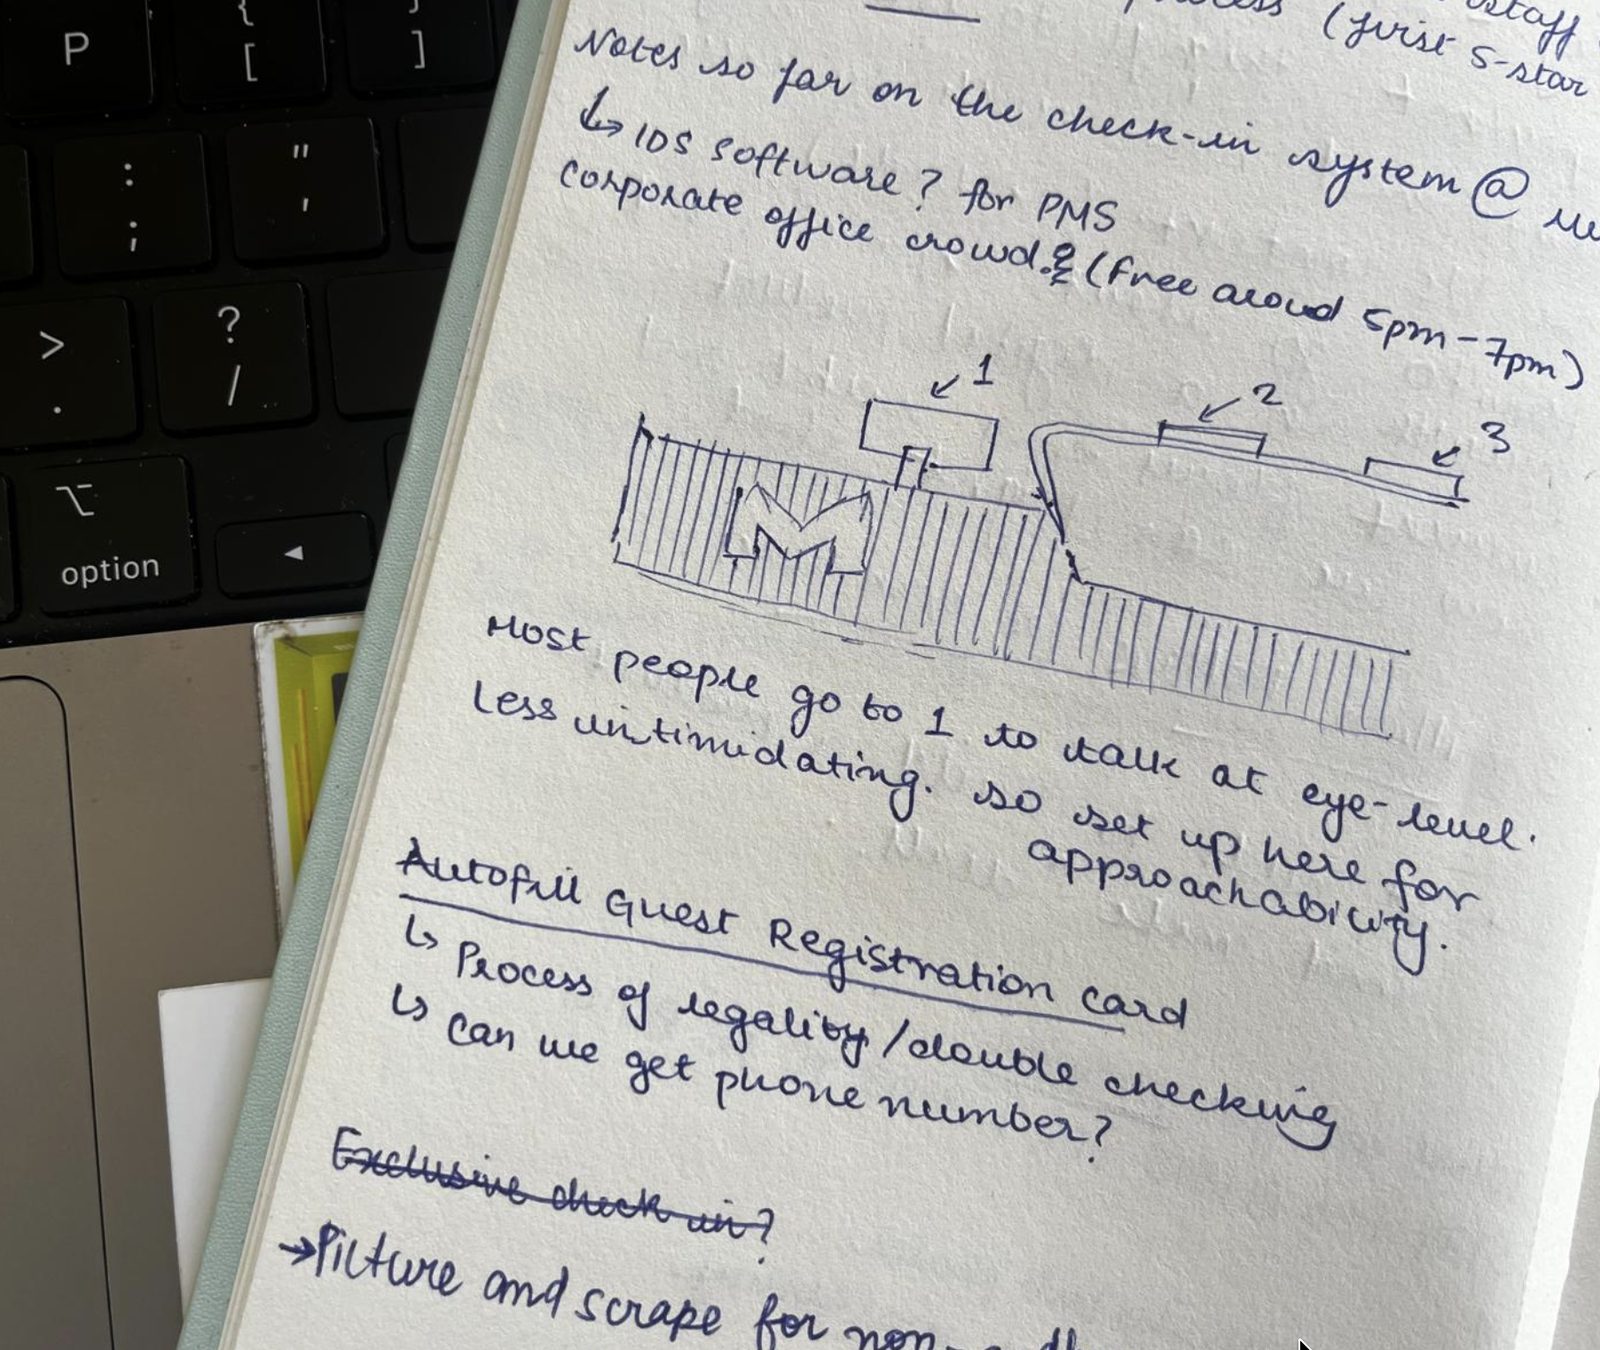 staff
(first 5-star
Notes so far on the check-in system @
↳ IDS software? for PMS
corporate office crowd. & (free aroud 5pm-7pm)
1
2
3
M
Most people go to 1 to talk at eye-level.
Less intimidating. so set up here for
approachability.
Autofill Guest Registration card
↳ Process of legality/double checking
↳ can we get phone number?
Exclusive check in?
→Picture and scrape for non-
P
{
[
}
]
:
;
"
'
>
.
?
/
⌥
option
◄